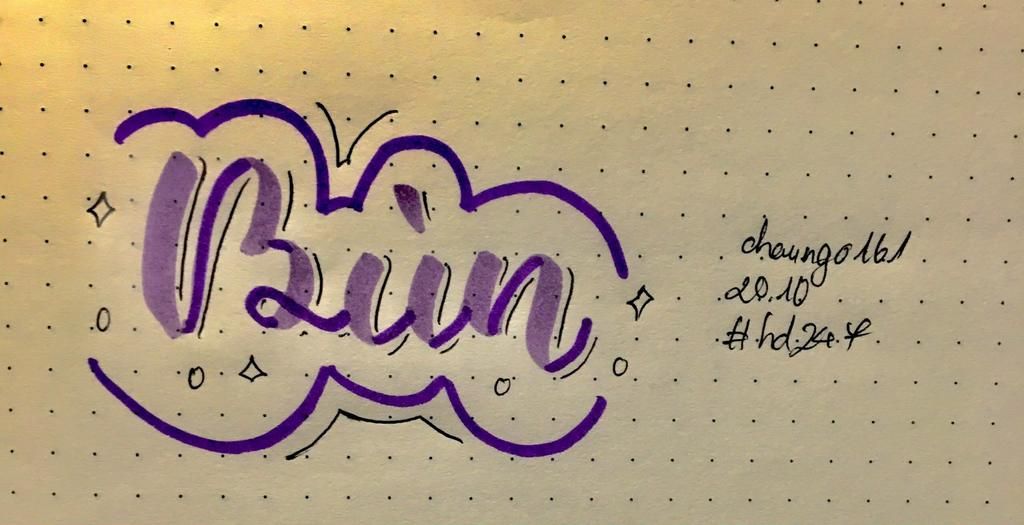 Bùn
chaungo161
20.10
#hd.24.7